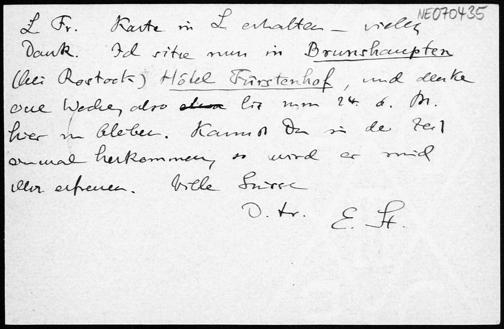 NE070435
L Fr. Karte in L erhalten – vielen
Dank. Ich sitze nun in Brunshaupten
(bei Rostock) Hôtel Fürstenhof, und denke
eine Woche, also etwa bis zum 24. d. M.
hier zu bleiben. Kannst Du in der Zeit
einmal herkommen, so wird es mich
sehr erfreuen. Viele Grüsse
D. tr. E. St.